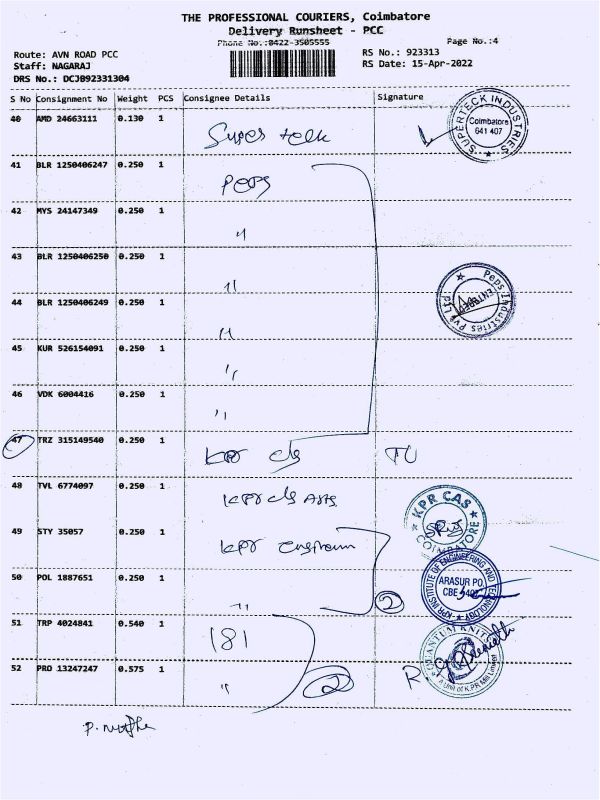 THE PROFESSIONAL COURIERS, Coimbatore
Delivery Runsheet - PCC
Phone No.:0422-3505555
Page No.:4
Route: AVN ROAD PCC
Staff: NAGARAJ
DRS No.: DCJ092331304
RS No.: 923313
RS Date: 15-Apr-2022
S No Consignment No Weight PCS Consignee Details Signature
40 AMD 24663111 0.130 1
SUPERTECK INDUSTRIES Coimbatore 641 407
41 BLR 1250406247 0.250 1 PEPS
42 MYS 24147349 0.250 1 "
43 BLR 1250406250 0.250 1 "
44 BLR 1250406249 0.250 1 "
Peps Industries Pvt
45 KUR 526154091 0.250 1 "
46 VDK 6004416 0.250 1 "
47 TRZ 315149540 0.250 1 KPR clg
48 TVL 6774097 0.250 1 KPR clg Arts
KPR CAS COIMBATORE
49 STY 35057 0.250 1 KPR
50 POL 1887651 0.250 1 "
2
KPR INSTITUTE OF ENGINEERING AND ARASUR PO.
51 TRP 4024841 0.540 1 181
QUANTUM KNITS A Unit of K.P.R Mill Limited
52 PRO 13247247 0.575 1 "
2
R.